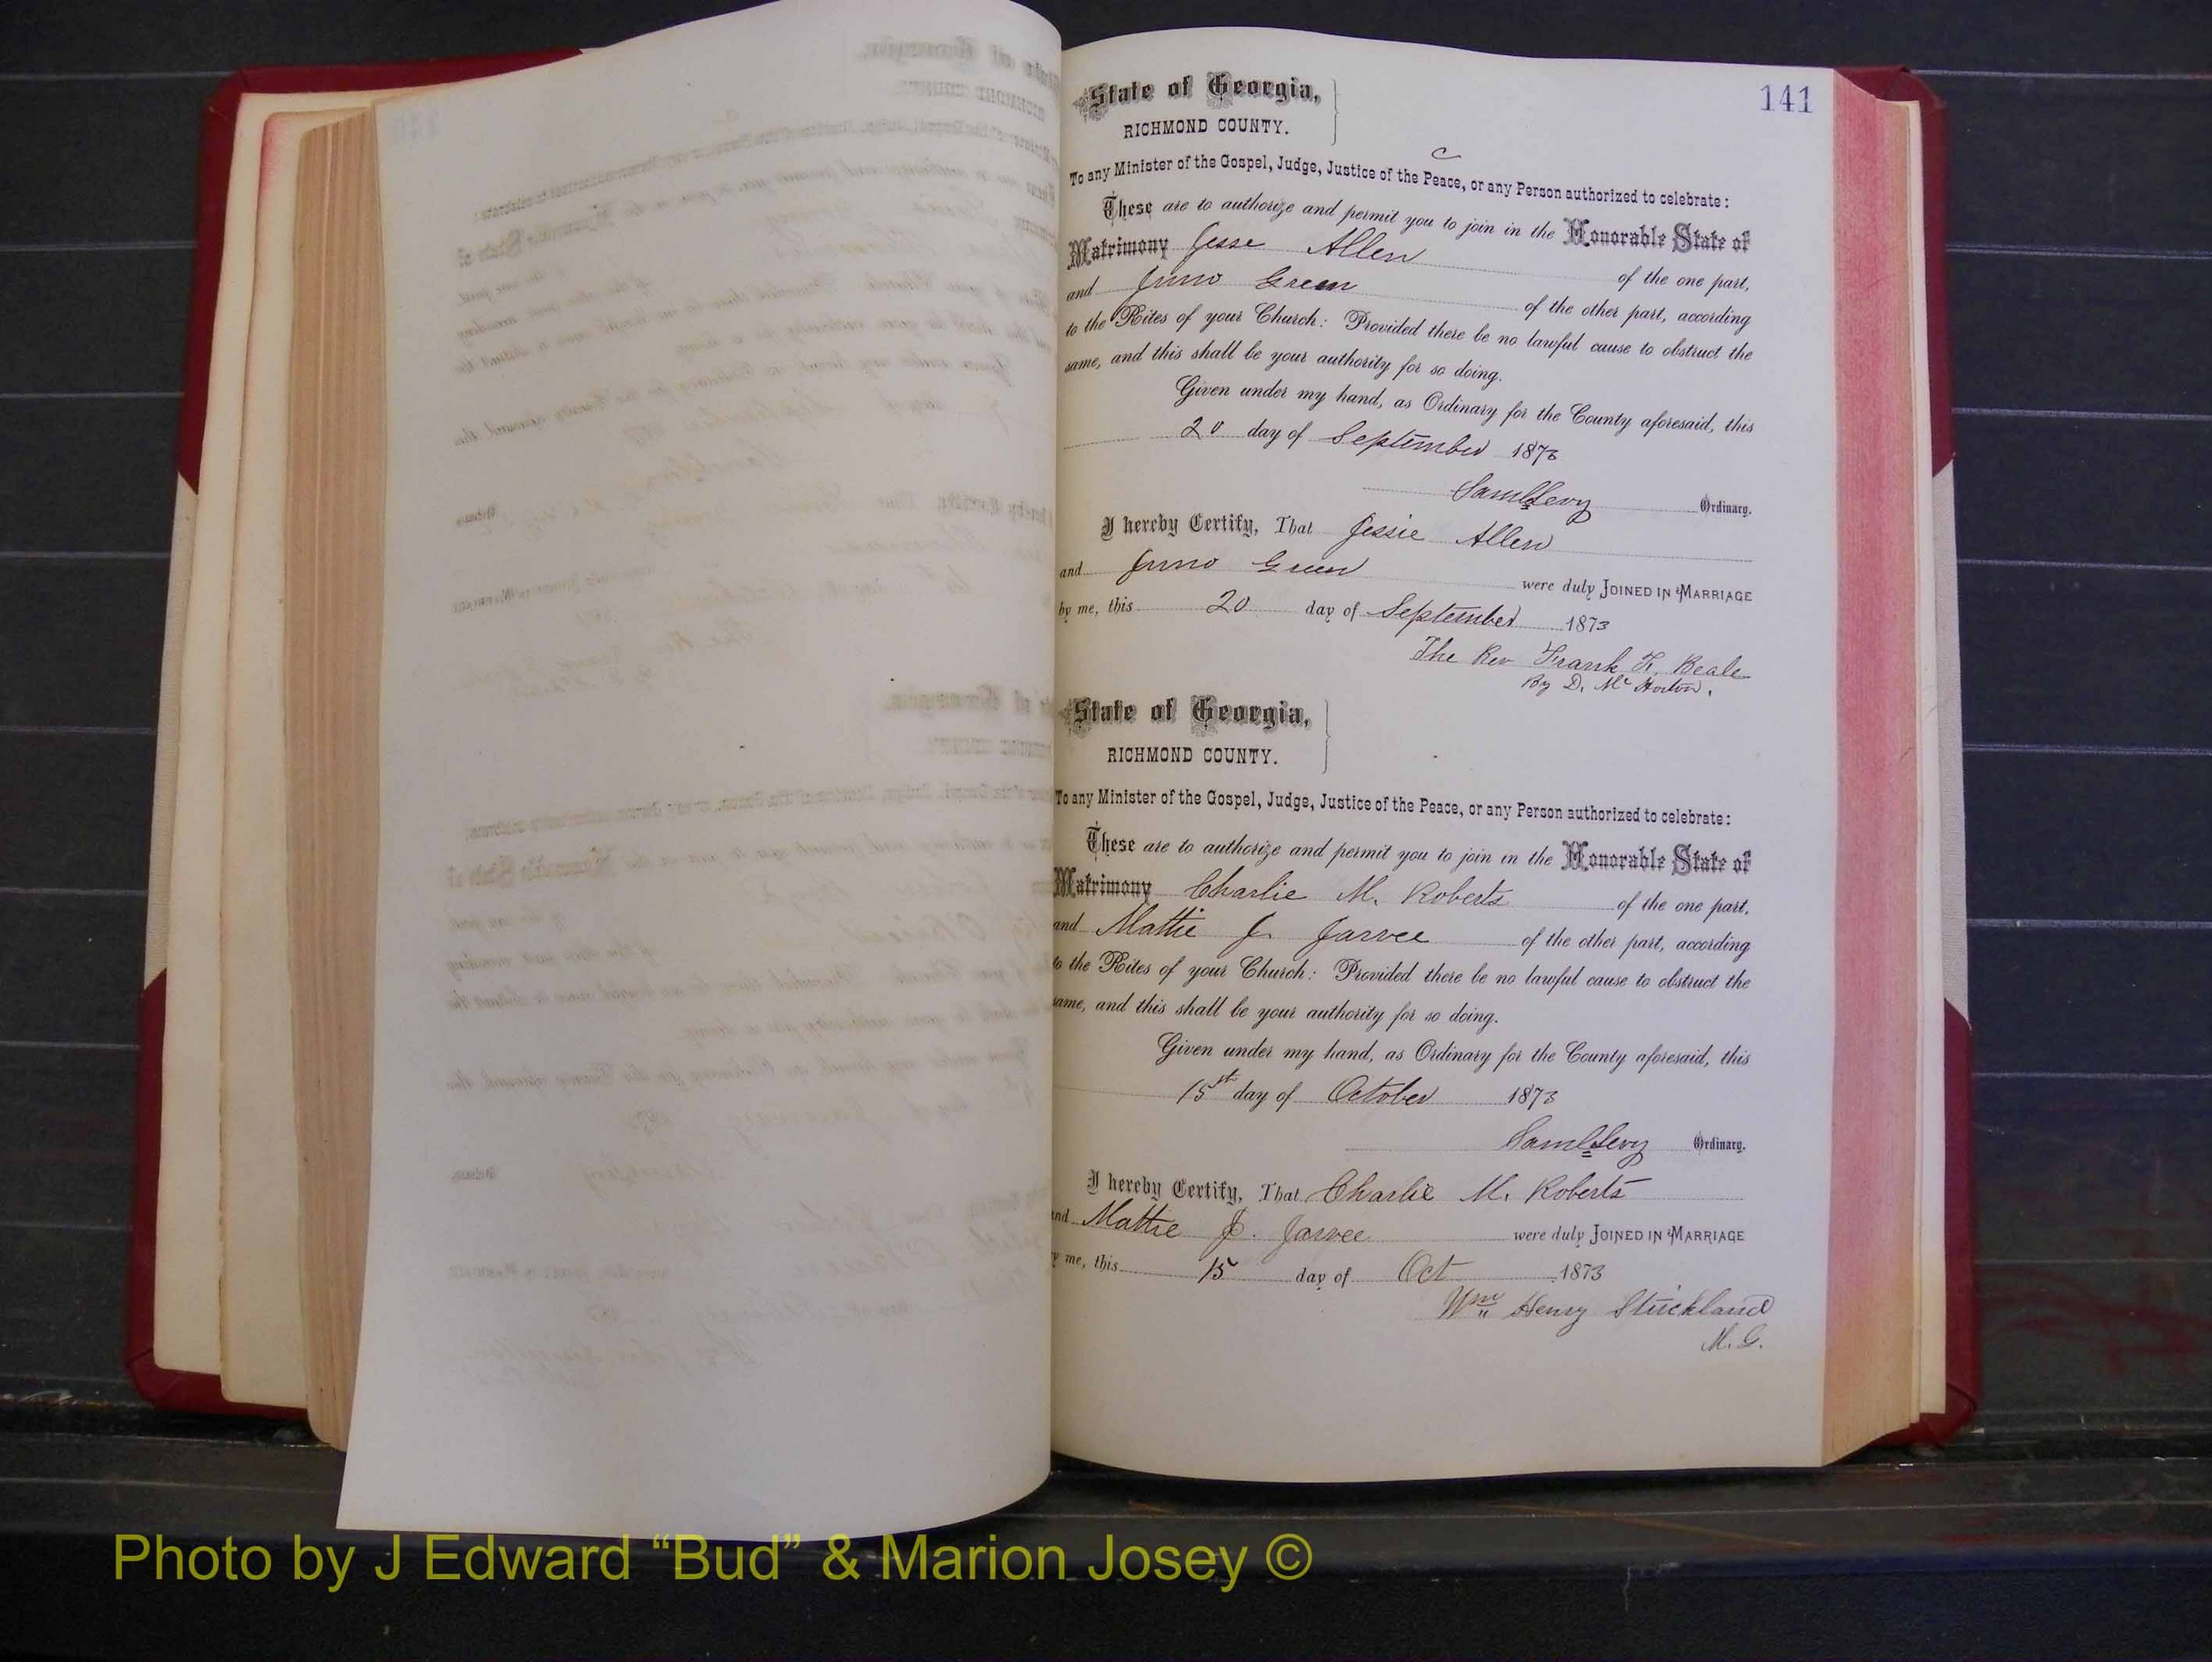 141
State of Georgia,
RICHMOND COUNTY.
C
To any Minister of the Gospel, Judge, Justice of the Peace, or any Person authorized to celebrate:
These are to authorize and permit you to join in the Honorable State of
Matrimony Jesse Allen of the one part,
and Juno Green of the other part, according
to the Rites of your Church: Provided there be no lawful cause to obstruct the
same, and this shall be your authority for so doing.
Given under my hand, as Ordinary for the County aforesaid, this
20 day of September 1873
Saml Levy Ordinary.
I hereby Certify, That Jessie Allen
and Juno Green were duly JOINED IN MARRIAGE
by me, this 20 day of September 1873
The Rev Frank F. Beale
By D. Mc Horton.
State of Georgia,
RICHMOND COUNTY.
To any Minister of the Gospel, Judge, Justice of the Peace, or any Person authorized to celebrate:
These are to authorize and permit you to join in the Honorable State of
Matrimony Charlie M. Roberts of the one part,
and Mattie J. Jarvee of the other part, according
to the Rites of your Church: Provided there be no lawful cause to obstruct the
same, and this shall be your authority for so doing.
Given under my hand, as Ordinary for the County aforesaid, this
15th day of October 1873
Saml Levy Ordinary.
I hereby Certify, That Charlie M. Roberts
and Mattie J. Jarvee were duly JOINED IN MARRIAGE
by me, this 15 day of Oct 1873
Wm Henry Strickland
M.G.
Photo by J Edward “Bud” & Marion Josey ©